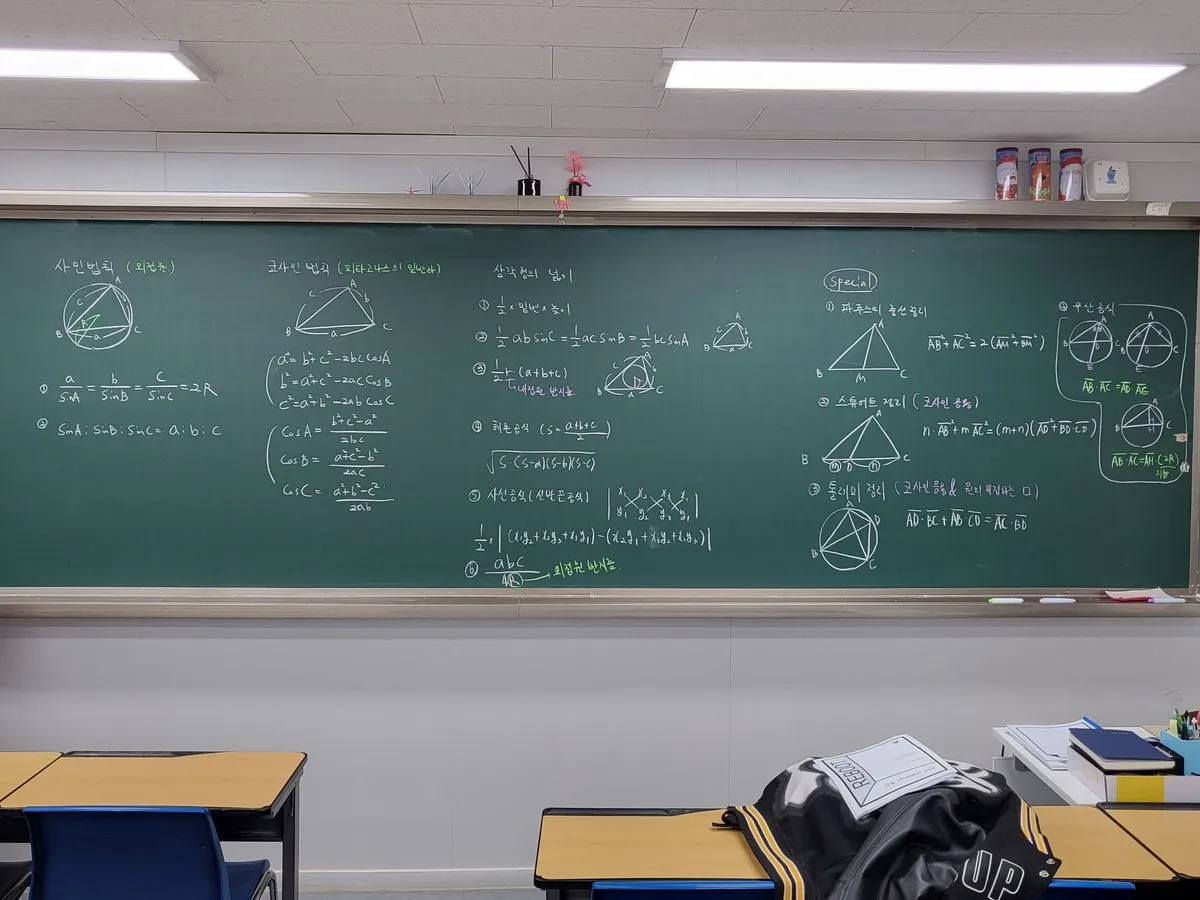 사인법칙 (외접원)
A
c b
R
B a C
① a/sinA = b/sinB = c/sinC = 2R
② sinA : sinB : sinC = a : b : c
코사인 법칙 (피타고라스의 일반화)
A
c b
B a C
a² = b² + c² - 2bc cosA
b² = a² + c² - 2ac cosB
c² = a² + b² - 2ab cosC
cosA = (b² + c² - a²)/2bc
cosB = (a² + c² - b²)/2ac
cosC = (a² + b² - c²)/2ab
삼각형의 넓이
① 1/2 × 밑변 × 높이
② 1/2 ab sinC = 1/2 ac sinB = 1/2 bc sinA
A
c b
B a C
③ 1/2 r (a+b+c)
내접원 반지름
A
c b
r
B a C
④ 헤론공식 (S = (a+b+c)/2)
√(S·(S-a)(S-b)(S-c))
⑤ 사선공식 (신발끈공식) | x₁ x₂ x₃ x₁ |
y₁ y₂ y₃ y₁
1/2 × | (x₁y₂ + x₂y₃ + x₃y₁) - (x₂y₁ + x₃y₂ + x₁y₃) |
⑥ abc/4R → 외접원 반지름.
Special
① 파푸스의 중선정리
A
B M C
AB² + AC² = 2(AM² + BM²)
② 스튜어트 정리 (코사인 응용)
A
B m D n C
n·AB² + m AC² = (m+n)(AD² + BD·CD)
③ 톨레미 정리 (코사인 응용 & 원의 내접하는 □)
A
D
B
C
AD·BC + AB·CD = AC·BD
④ 우산공식
A
B C
E
A
B D C
E
AB·AC = AD·AE
A
B H C
AB·AC = AH·(2R)
지름
REBOOT
UP